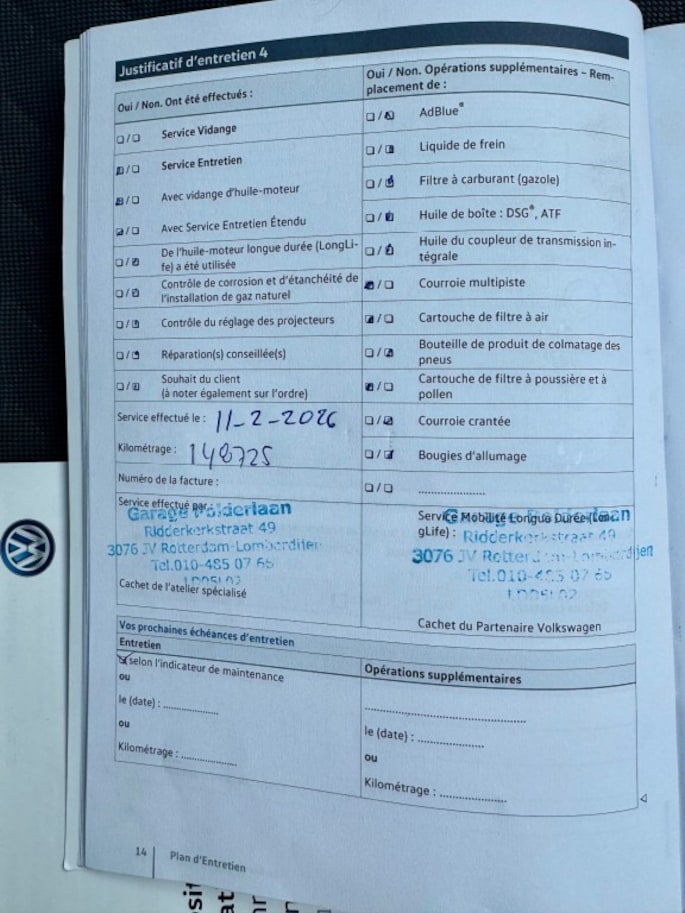 Justificatif d'entretien 4
Oui / Non. Ont été effectués :
Service Vidange
Service Entretien
Avec vidange d'huile-moteur
Avec Service Entretien Étendu
De l'huile-moteur longue durée (LongLi-
fe) a été utilisée
Contrôle de corrosion et d'étanchéité de
l'installation de gaz naturel
Contrôle du réglage des projecteurs
Réparation(s) conseillée(s)
Souhait du client
(à noter également sur l'ordre)
Service effectué le : 11-2-2026
Kilométrage : 148725
Numéro de la facture :
Service effectué par :
Garage Polderlaan
Ridderkerkstraat 49
3076 JV Rotterdam-Lombardijen
Tel.010-485 07 65
Cachet de l'atelier spécialisé
Oui / Non. Opérations supplémentaires – Rem-
placement de :
AdBlue®
Liquide de frein
Filtre à carburant (gazole)
Huile de boîte : DSG®, ATF
Huile du coupleur de transmission in-
tégrale
Courroie multipiste
Cartouche de filtre à air
Bouteille de produit de colmatage des
pneus
Cartouche de filtre à poussière et à
pollen
Courroie crantée
Bougies d'allumage
......................
Service Mobilité Longue Durée (Lon-
gLife) :
Garage Polderlaan
Ridderkerkstraat 49
3076 JV Rotterdam-Lombardijen
Tel.010-485 07 65
Cachet du Partenaire Volkswagen
Vos prochaines échéances d'entretien
Entretien
selon l'indicateur de maintenance
ou
le (date) : ..................
ou
Kilométrage : ..................
Opérations supplémentaires
..................................................
le (date) : ......................
ou
Kilométrage : ......................
14 Plan d'Entretien